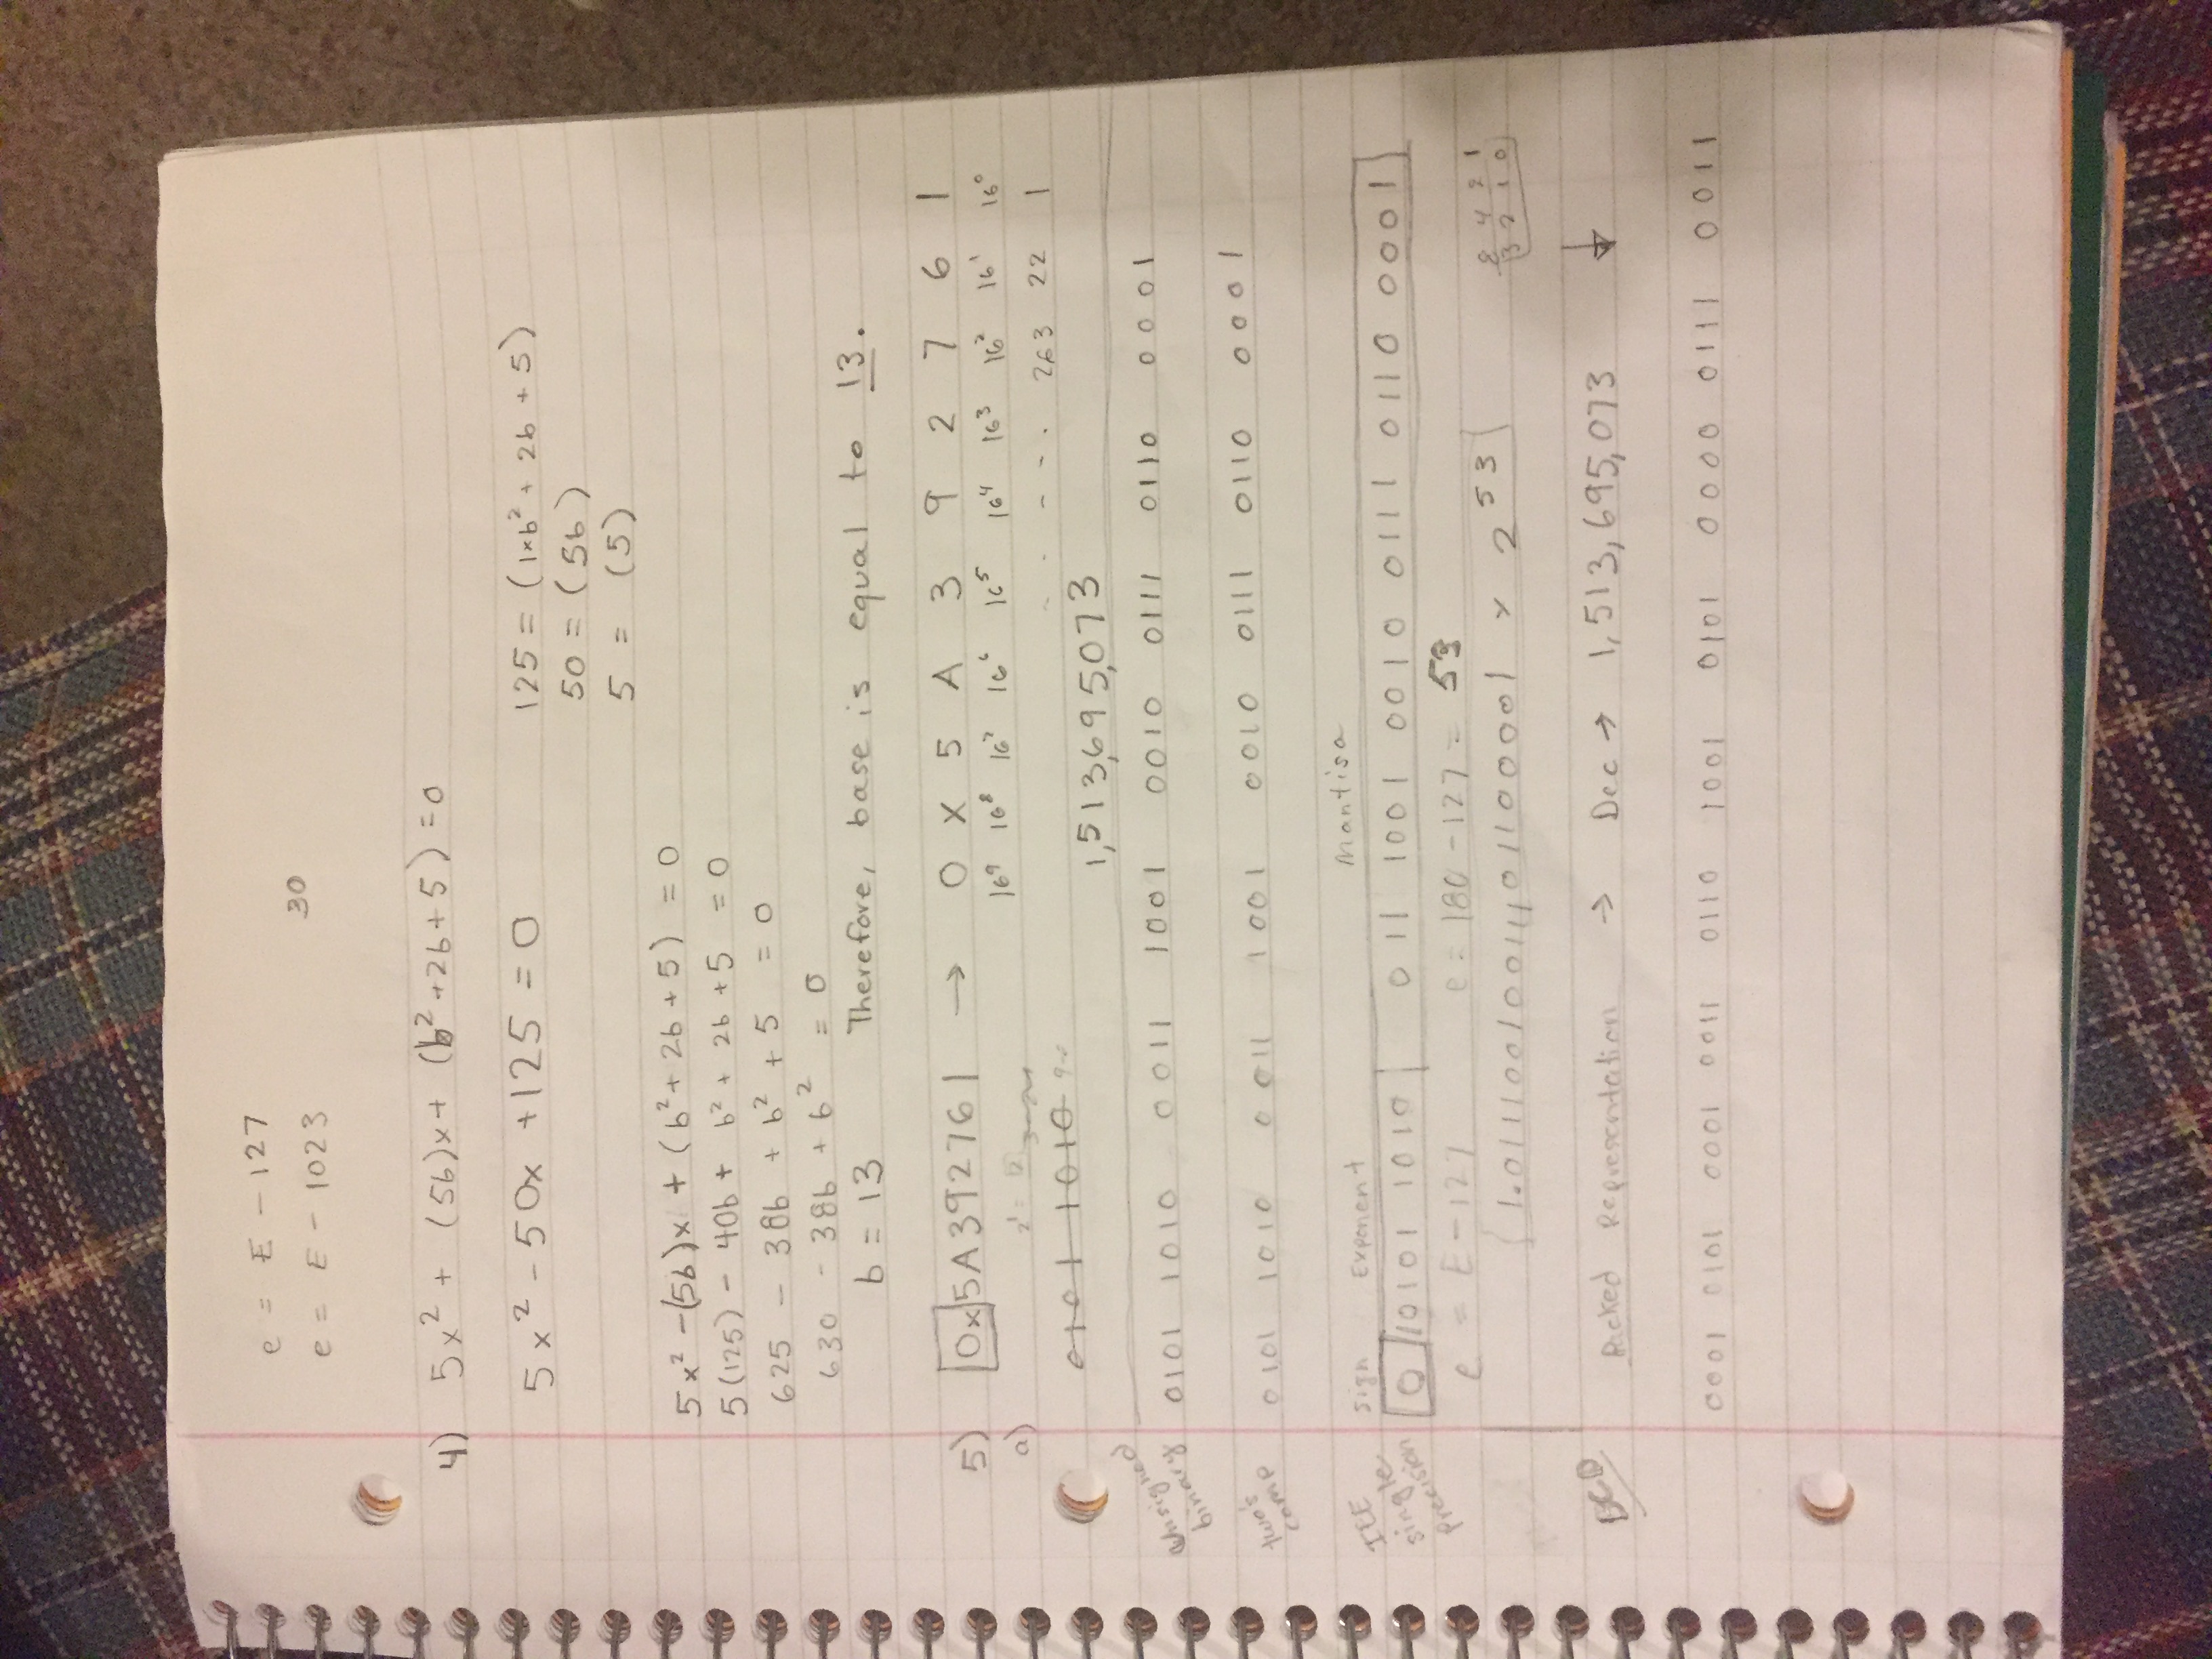 e = E - 127
30
e = E - 1023
4) 5x² + (5b)x + (b² + 2b + 5) = 0
5x² - 50x + 125 = 0
125 = (1×b² + 2b + 5)
50 = (5b)
5 = (5)
5x² - (5b)x + (b² + 2b + 5) = 0
5(125) - 40b + b² + 2b + 5 = 0
625 - 38b + b² + 5 = 0
630 - 38b + b² = 0
b = 13 Therefore, base is equal to 13.
5) 0x5A392761 → 0 X 5 A 3 9 2 7 6 1
16⁹ 16⁸ 16⁷ 16⁶ 16⁵ 16⁴ 16³ 16² 16¹ 16⁰
a) 2¹ = 2
0101 1010
- - - - - . 263 22 1
1,513,695,073
Unsigned binary
0101 1010 0011 1001 0010 0111 0110 0001
two's comp
0101 1010 0011 1001 0010 0111 0110 0001
IEE single precision
Sign Exponent Mantisa
0 10101 1010 011 1001 0010 0111 0110 0001
e = E - 127 e = 180 - 127 = 53
1.01110010011101100001 × 2⁵³
8 4 2 1
3 2 1 0
BCD
Packed Representation → Dec → 1,513,695,073 ↓
0001 0101 0001 0011 0110 1001 0101 0000 0111 0011